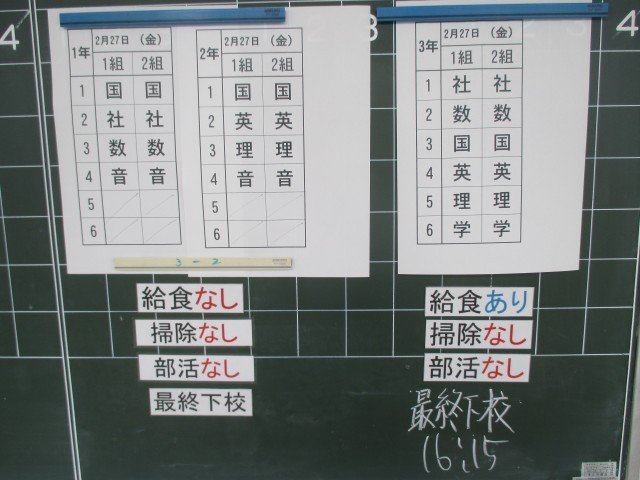 4
1年 2月27日 (金)
1組 2組
1 国 国
2 社 社
3 数 数
4 音 音
5
6
2年 2月27日 (金)
1組 2組
1 国 国
2 英 英
3 理 理
4 音 音
5
6
3 - 2
給食なし
掃除なし
部活なし
最終下校
3年 2月27日 (金)
1組 2組
1 社 社
2 数 数
3 国 国
4 英 英
5 理 理
6 学 学
4
給食あり
掃除なし
部活なし
最終下校
16:15